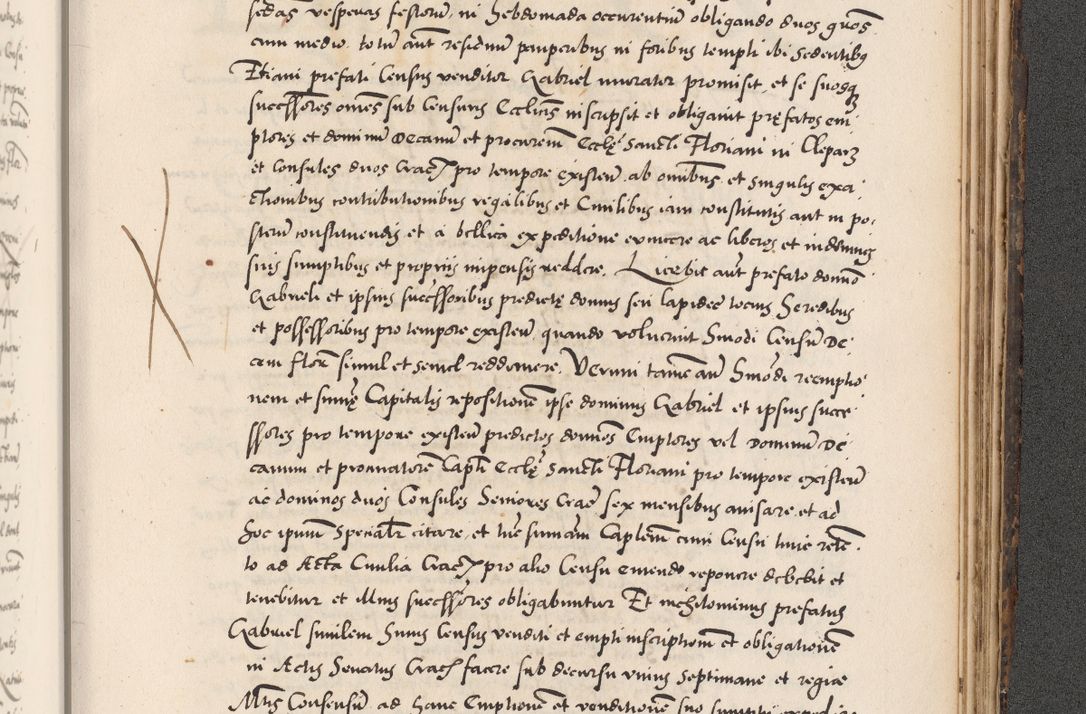 sedas vesperas festorum, in hebdomada occurentium obligando duos gros
cum medio. totum aut residuum pauperibus in foribus templi ibi sedentibus
Etiam prefati Census venditor Gabriel murator promisit, et se suosq
successores omes sub Censuris Ecclicis inscripsit et obligavit prefatos em
ptores et dominum Decanum et procurem Eccle Sancti Floriani in Clepar
et Consules duos Crac pro tempore existen ab omnibus et singulis exa
ctionibus contributionibus regalibus et Civilibus iam constitutis aut in po
sterum constituendis et a bellica expeditione evincere ac liberos et indemnes
suis sumptibus et propriis impensis reddere. Licebit aut prefato domno
Gabrieli et ipsius successoribus predicte domus seu lapidee tocius heredibus
et possessoribus pro tempore existen, quando voluerint hmodi Censum De
cem flor simul et semel reddimere. Verum tamen an hmodi reemptio
nem et summe Capitalis repositionem ipse dominus Gabriel et ipsius succe
ssores pro tempore existen predictos domnos Emptores vel dominum De
canum et procuratore Capli Eccle Sancti Floriani pro tempore existen
ac dominos duos Consules Seniores Crac sex mensibus avisare et ad
hoc ipsum Specialr citare, et huc summam Caplem cum Censu tunc reten
to ad Acta Civilia Crac pro alio Censu emendo reponere debebit et
tenebitur et illius successores obligabuntur Et nichilominus prefatus
Gabriel similem huius Census venditi et empti inscriptionem et obligationem
in Actis Senatus Crac facere sub decursu unius septimane et regiae
Mtis Consensum ad hanc Emptionem et venditionem suo sumptu